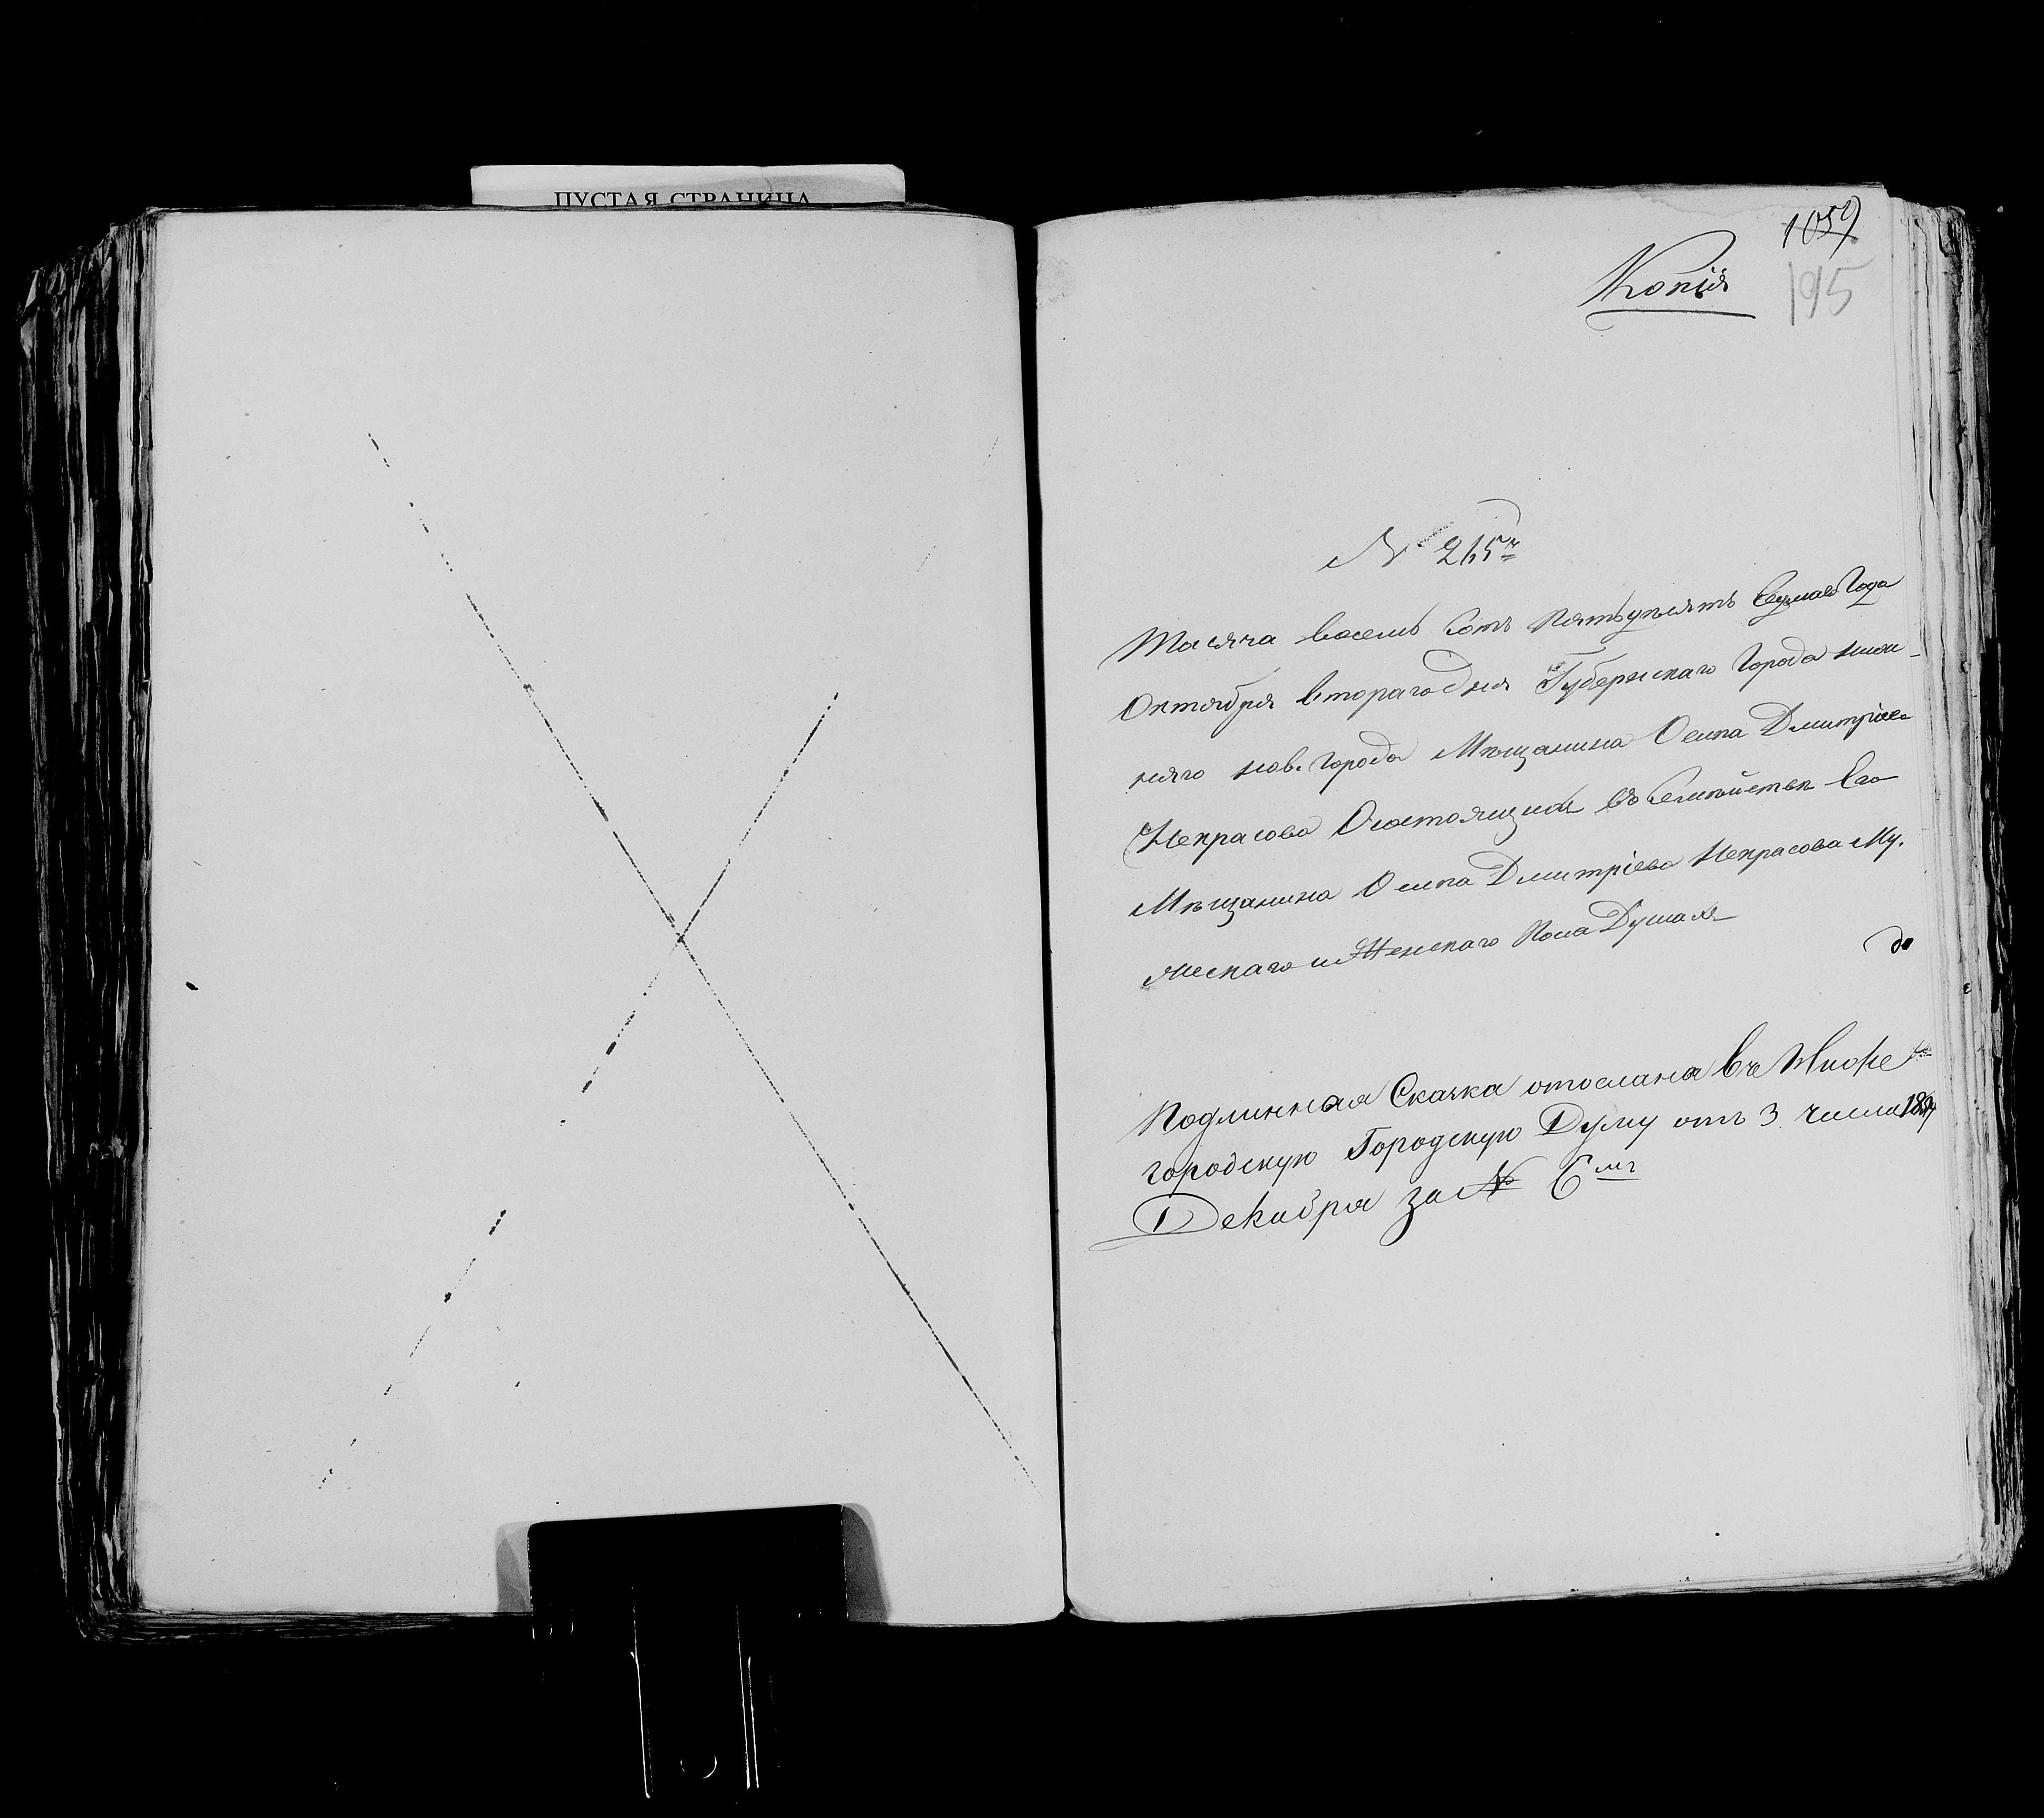 ПУСТАЯ СТРАНИЦА
1059
Копія
195
№ 265й
Тысяча восемь сотъ пятьдѣсятъ Седмаго Года
Октября втораго дня Губернскаго Города нижн-
няго нов. города Мѣщанина Осипа Дмитріева
Некрасова О состоящихъ въ Семѣйствѣ Его
Мѣщанина Осипа Дмитріева Некрасова Му.
жескаго и Женскаго Пола Душахъ
Подлинная Скаска отослана въ Ниже
городскую Городскую Думу отъ 3 числа
Декабря за № 6мъ